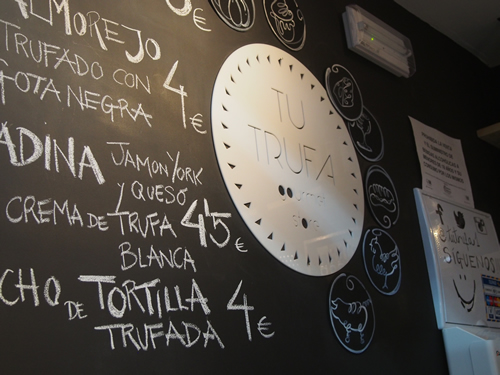 5€
ALMOREJO
TRUFADO CON 4€
GOTA NEGRA
ADINA JAMON YORK
Y QUESO
CREMA DE TRUFA 4'5€
BLANCA
CHO DE TORTILLA 4€
TRUFADA
TU
TRUFA
gourmet
store
SÍGUENOS